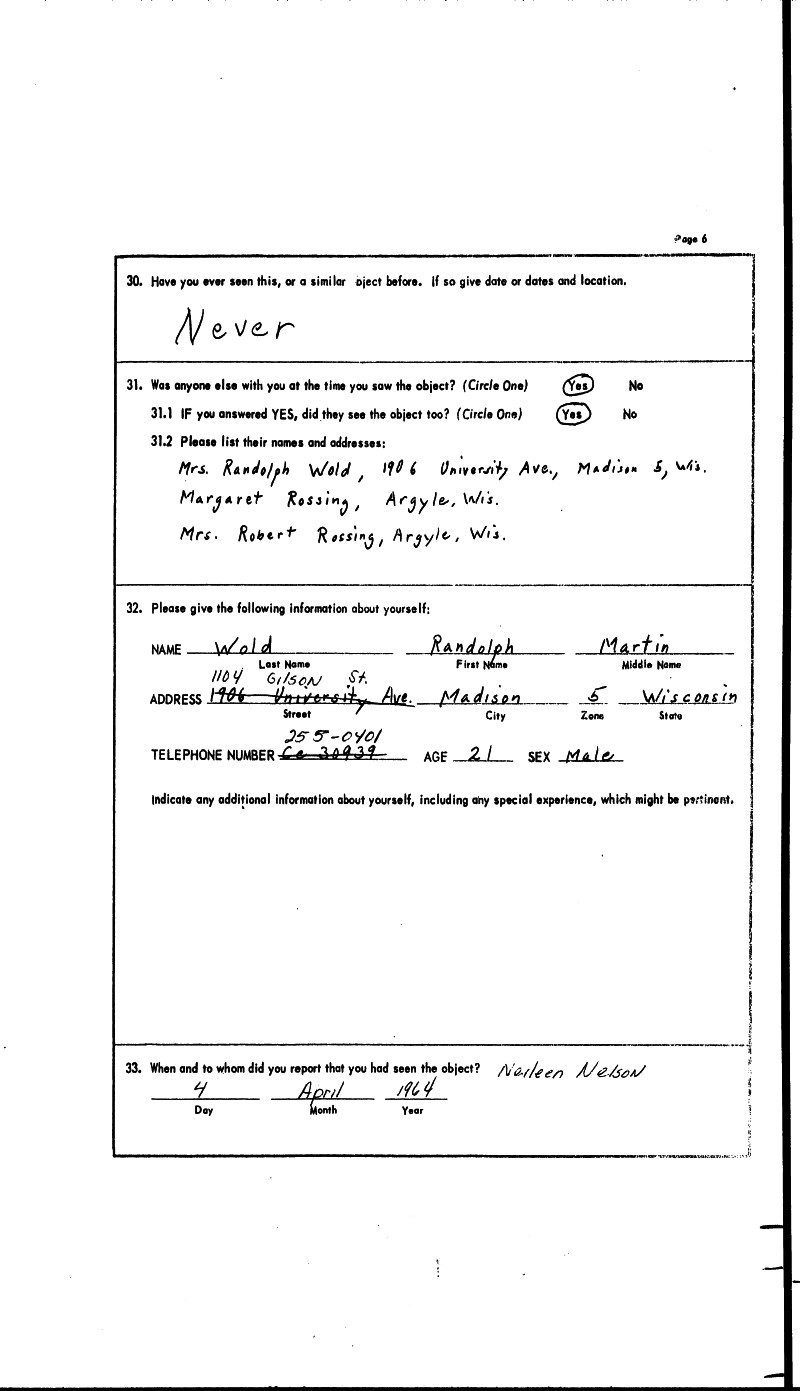 Page 6
30. Have you ever seen this, or a similar oject before. If so give date or dates and location.
Never
31. Was anyone else with you at the time you saw the object? (Circle One) Yes No
31.1 IF you answered YES, did they see the object too? (Circle One) Yes No
31.2 Please list their names and addresses:
Mrs. Randolph Wold, 1906 University Ave., Madison 5, Wis.
Margaret Rossing, Argyle, Wis.
Mrs. Robert Rossing, Argyle, Wis.
32. Please give the following information about yourself:
NAME Wold Randolph Martin
Last Name First Name Middle Name
1104 GilSON St.
ADDRESS 1906 University Ave. Madison 5 Wisconsin
Street City Zone State
255-0401
TELEPHONE NUMBER Ce 30939 AGE 21 SEX Male
Indicate any additional information about yourself, including any special experience, which might be pertinent.
33. When and to whom did you report that you had seen the object? Nelson
4 April 1964
Day Month Year